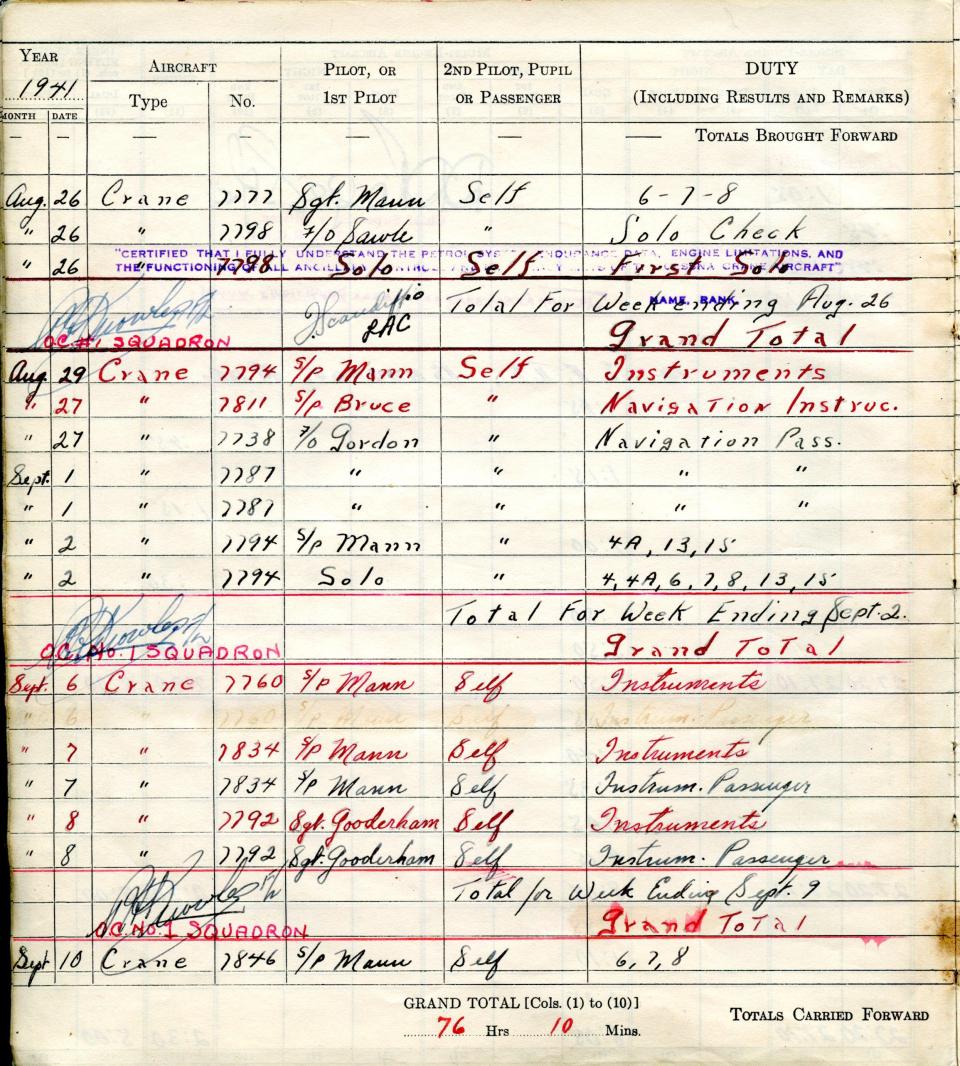 YEAR 1941 AIRCRAFT PILOT, OR 1ST PILOT 2ND PILOT, PUPIL OR PASSENGER DUTY (INCLUDING RESULTS AND REMARKS)
MONTH DATE Type No.
— — — — — TOTALS BROUGHT FORWARD
Aug. 26 Crane 7777 Sgt. Mann Self 6-7-8
" 26 " 7798 F/O Sawle " Solo Check
"CERTIFIED THAT I FULLY UNDERSTAND THE PETROL SYSTEM ENDURANCE DATA, ENGINE LIMITATIONS, AND
" 26 " 7798 Solo Self First Solo
THE FUNCTIONING OF ALL AIRCRAFT"
Total For Week ending Aug. 26
NAME, RANK
LAC Grand Total
O.C. #1 SQUADRON
Aug 29 Crane 7794 S/P Mann Self Instruments
" 27 " 7811 S/P Bruce " Navigation Instruc.
" 27 " 7738 F/O Gordon " Navigation Pass.
Sept. 1 " 7787 " " " "
" 1 " 7787 " " " "
" 2 " 7794 S/P Mann " 4A, 13, 15
" 2 " 7794 Solo " 4, 4A, 6, 7, 8, 13, 15
Total For Week Ending Sept. 2.
O.C. No. 1 SQUADRON Grand Total
Sept. 6 Crane 7760 S/P Mann Self Instruments
" 6 " 7760 S/P Mann Self Instrum. Passenger
" 7 " 7834 S/P Mann Self Instruments
" 7 " 7834 S/P Mann Self Instrum. Passenger
" 8 " 7792 Sgt. Gooderham Self Instruments
" 8 " 7792 Sgt. Gooderham Self Instrum. Passenger
Total for Week Ending Sept. 9
O.C. No. 1 SQUADRON Grand Total
Sept 10 Crane 7846 S/P Mann Self 6, 7, 8
GRAND TOTAL [Cols. (1) to (10)]
76 Hrs 10 Mins.
TOTALS CARRIED FORWARD